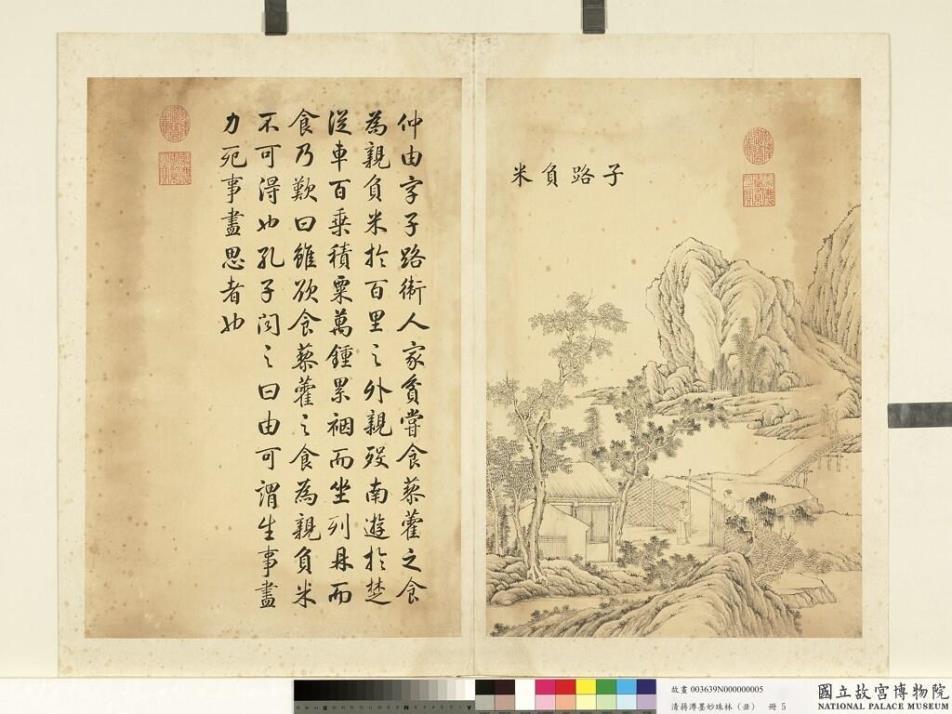 子路負米
仲由字子路衛人家貧嘗食藜藿之食
為親負米於百里之外親歿南遊於楚
從車百乘積粟萬鍾累裀而坐列鼎而
食乃歎曰雖欲食藜藿之食為親負米
不可得也孔子聞之曰由可謂生事盡
力死事盡思者也
故畫 003639N000000005
清蔣溥墨妙珠林(丑) 冊 5
國立故宮博物院
NATIONAL PALACE MUSEUM